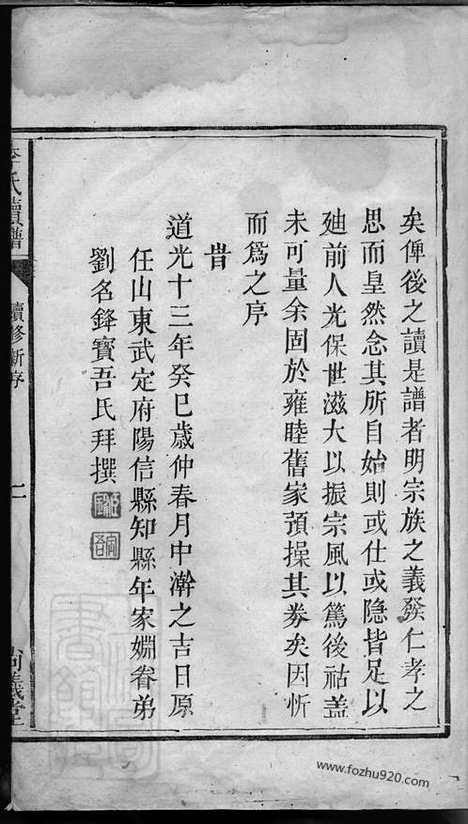 矣俾後之讀是譜者明宗族之義發仁孝之
思而皇然念其所自始則或仕或隐皆足以
廸前人光保世滋大以振宗風以篤後祜蓋
未可量余固於雍睦舊家預操其券矣因忻
而為之序
旹
道光十三年癸巳歲仲春月中澣之吉日原
任山東武定府陽信縣知縣年家姻眷弟
劉名鋒寳吾氏拜撰
李氏續譜
續修新序
二
尚義堂
www.fozhu920.com